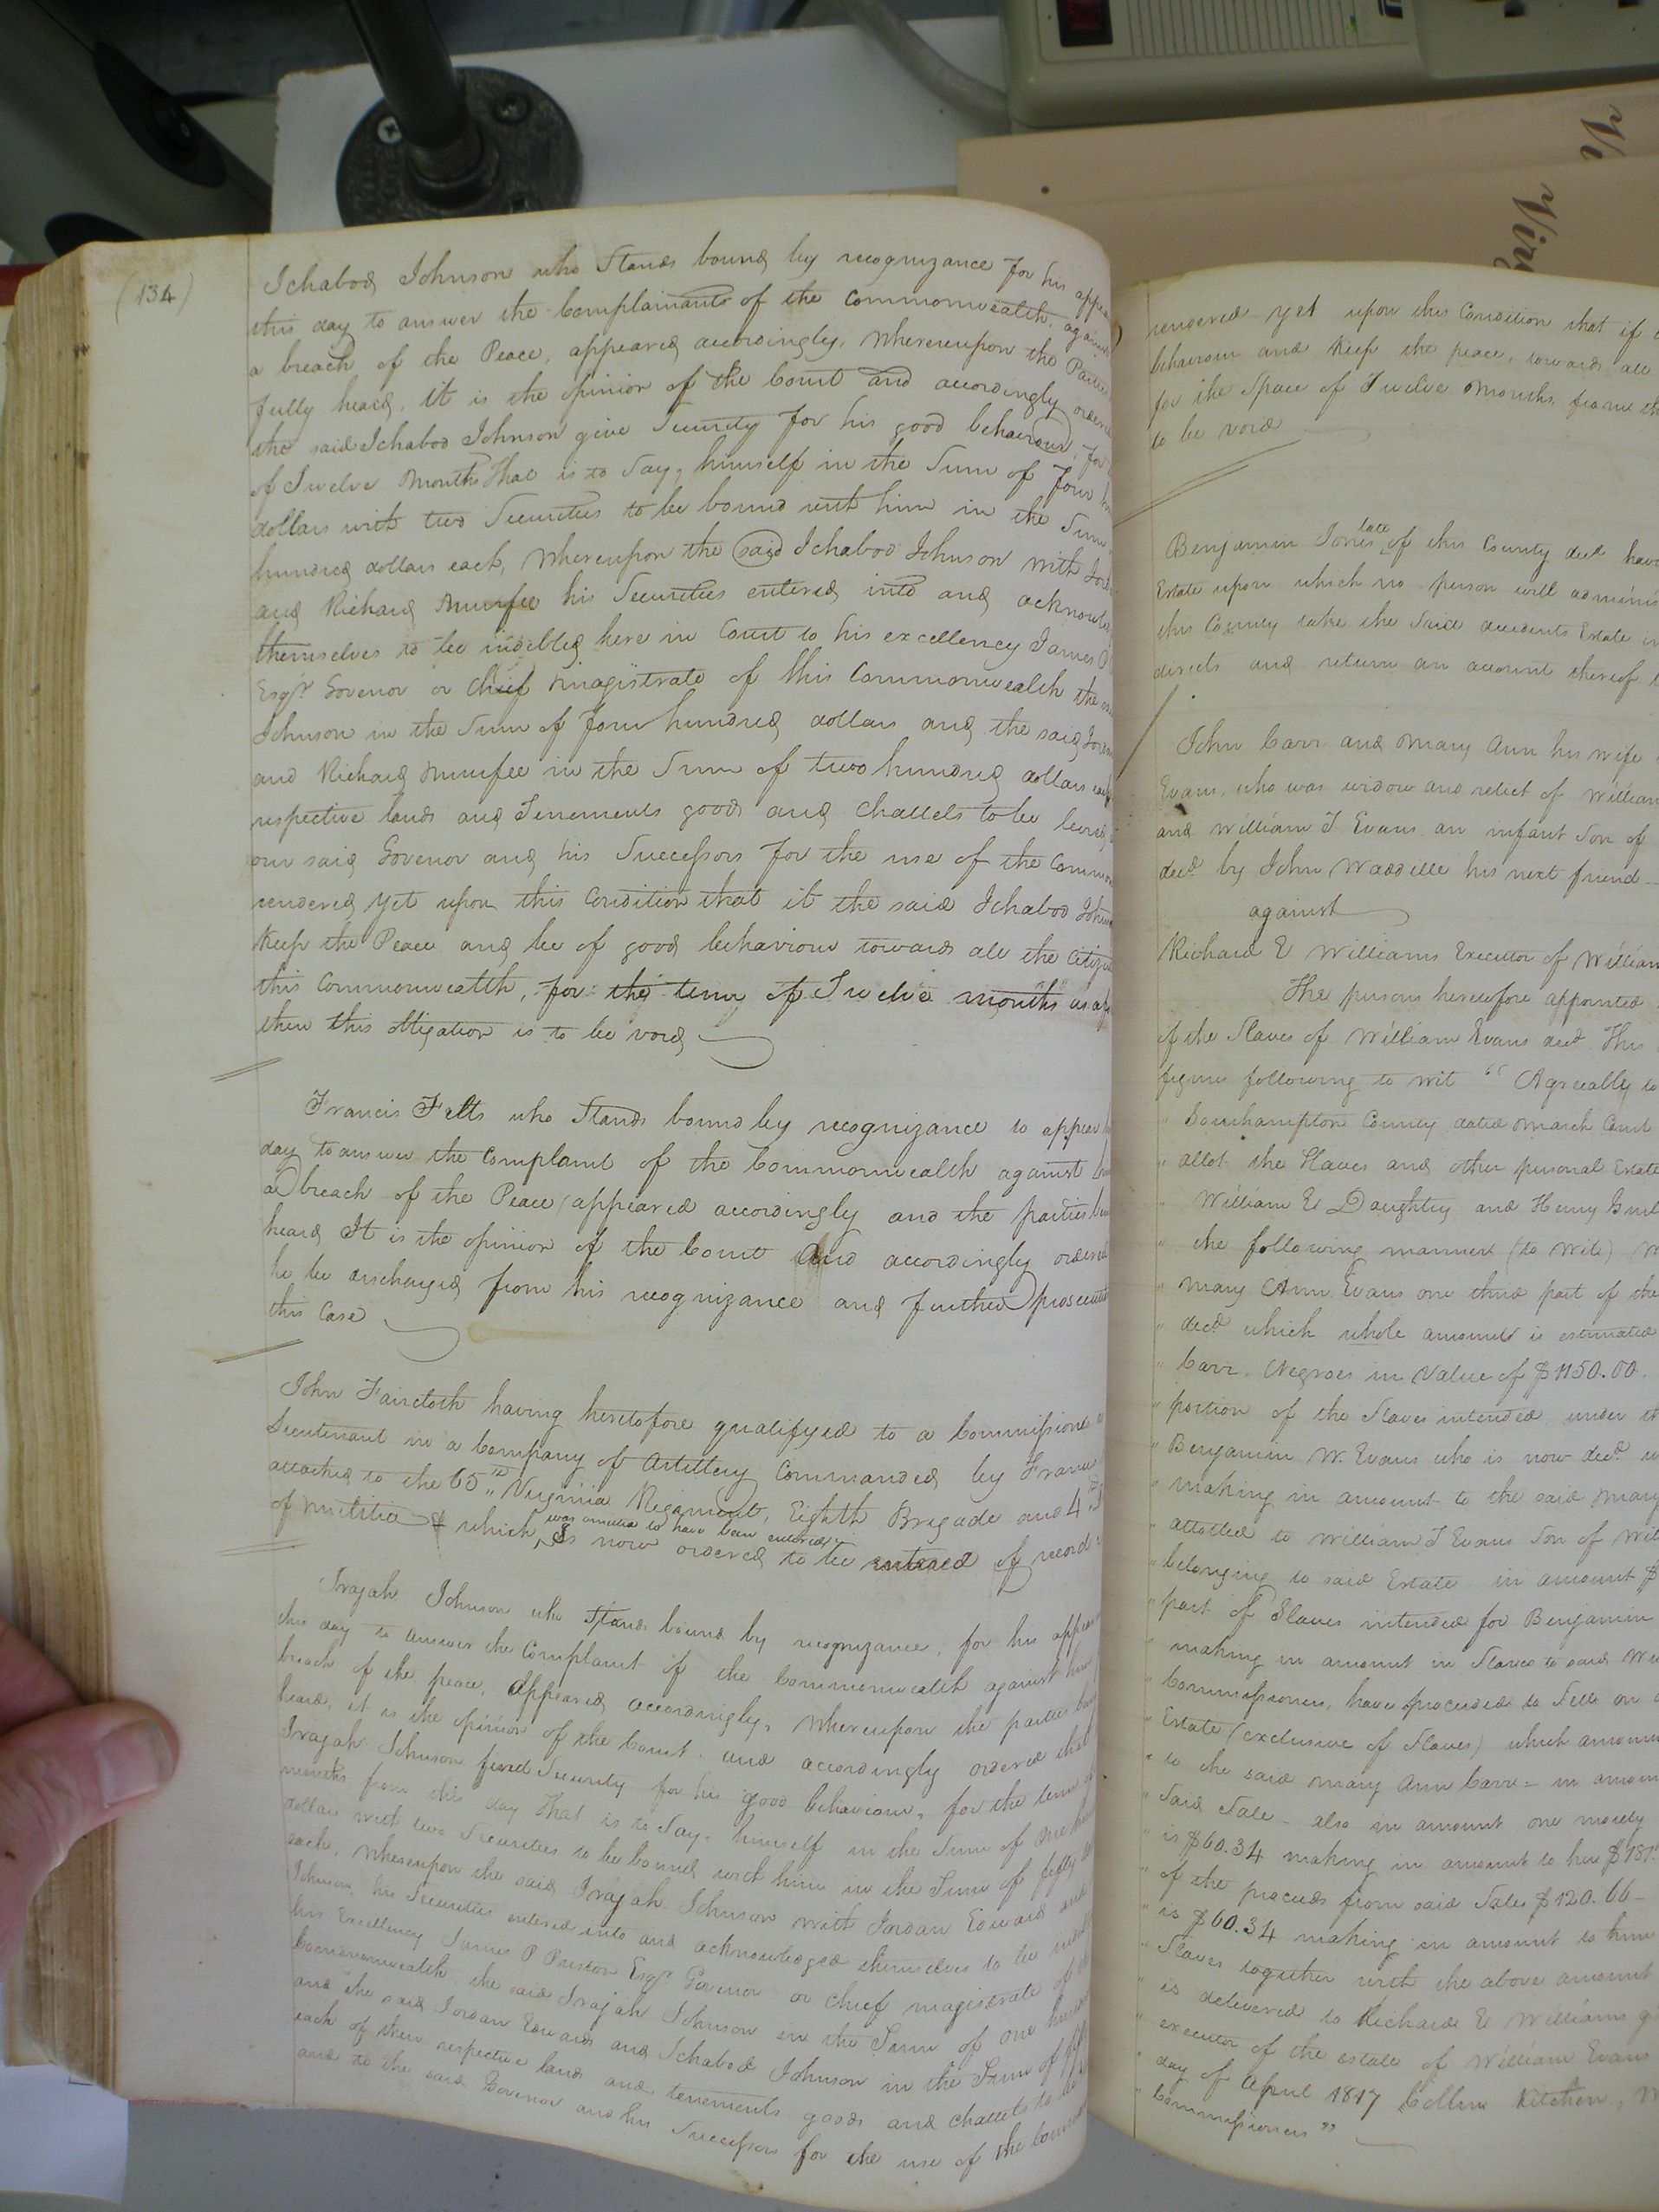 (134)
Ichabod Johnson who Stands bound by recognizance for his appea
this day to answer the Complainants of the Commonwealth, against
a breach of the Peace, appeared accordingly, Whereupon the Parties
fully heard, it is the opinion of the Court and accordingly ordered
the said Ichabod Johnson give Security for his good behaviour, for
of Twelve Months That is to Say, himself in the Sum of Four
dollars with two Securities to be bound with him in the Sum
hundred dollars each, Whereupon the said Ichabod Johnson with
and Richard Murfee his Securities entered into and acknowled
themselves to be indebted here in Court to his excellency James P
Esqr. Govenor or Chief Magistrate of this Commonwealth the
Johnson in the Sum of four hundred dollars and the said
and Richard Murfee in the Sum of two hundred dollars each
respective lands and Tenements goods and Chattels to be levied
our said Govenor and his Successors for the use of the Common
rendered yet upon this Condition that it the said Ichabod Johns
Keep the Peace and be of good behaviour towards all the Citizen
this Commonwealth, for the term of Twelve months as
then this obligation is to be void
Francis Felts who Stands bound by recognizance to appear
day to answer the Complaint of the Commonwealth against
a breach of the Peace appeared accordingly and the parties
heard It is the opinion of the Court and accordingly ordered
he be discharged from his recognizance and further prosecution
this Case
John Faircloth having heretofore qualifyed to a Commission
Lieutenant in a Company of Artillery Commanded by Francis
attached to the 65th Virginia Regiment, Eighth Brigade and 4th
of Militia which, was omitted to have been entered Is now ordered to be entered of record
Irajah Johnson who Stands bound by recognizance, for his appear
this day to answer the Complaint of the Commonwealth against him
breach of the peace, appeared accordingly, Whereupon the parties being
heard, it is the opinion of the Court and accordingly ordered that
Irajah Johnson find Security for his good behaviour, for the term of
months from this day That is to Say, himself in the Sum of One hun
dollars with two Securities to be bound with him in the Sum of fifty
each, Whereupon the said Irajah Johnson with Jordan Edwards and
Johnson his Securities entered into and acknowledged themselves to be
his Excellency James P Preston Esqr. Govenor or Chief magistrate of
Commonwealth the said Irajah Johnson in the Sum of One hundred
and the said Jordan Edwards and Ichabod Johnson in the Sum of
each of their respective land and tenements goods and Chattels to
and to the said Govenor and his Successors for the use of the Common
rendered yet upon this Condition that if
behaviour and Keep the peace, towards all
for the Space of Twelve Months from
to be void
Benjamin Jones late of this County decd. hav
Estate upon which no person will adminis
this County take the Said decedents Estate
directs and return an account thereof
John Carr and Mary Ann his wife
Evans, who was widow and relict of William
and William J Evans an infant Son of
decd. by John Waddille his next friend
against
Richard E Williams Executor of William
The persons heretofore appointed
of the Slaves of William Evans decd. This
figures following to wit " Agreeably to
" Southampton County dated March Court
" allot the Slaves and other personal Estate
" William E Daughtry and Henry
" the following manner (to wite)
" Mary Ann Evans one third part of the
" decd. which whole amount is estimated
" Carr. Negroes in Value of $1150.00.
" portion of the Slaves intended under
" Benjamin W. Evans who is now decd.
" making in amount to the said Mary
" allotted to William J Evans Son of Wil
" belonging to said Estate in amount $
" part of Slaves intended for Benjamin
" making in amount in Slaves to said
" Commissioners, have proceeded to Sell on
" Estate (exclusive of Slaves) which amoun
" to the said Mary Ann Carr - in amoun
" Said Sale - also in amount one moiety
" is $60.34 making in amount to her $187
" of the proceeds from said Sales $120.66 -
" is $60.34 making in amount to him
" Slaves together with the above amount
" is delivered to Richard E Williams
" executor of the estate of William Evans
" day of April 1817 Collin Kitchen,
" Commissioners "